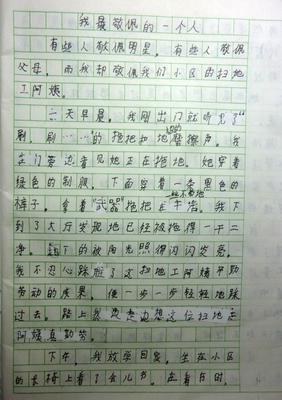 我最敬佩的一个人
有些人敬佩明星，有些人敬佩
父母，而我却敬佩我们小区的扫地
工阿姨。
一天早晨，我刚出门就听见了“
刷，刷……”的拖把和地的摩擦声。我
在门旁边看见她正在拖地。她穿着
绿色的制服，下面穿着一条黑色的
裤子，拿着“武器”拖把在丝不苟地干活。我下
到了大厅发现地已经被拖得一干二
净，地下的被阳光照得闪闪发亮。
我不忍心踩脏了这扫地工阿姨辛勤
劳动的成果，便一步一步轻轻地踩
过去。路上我边走边想这位扫地工
阿姨真勤劳。
下午，我放学回家，坐在小区
的长椅上看了会儿书。在看书时，